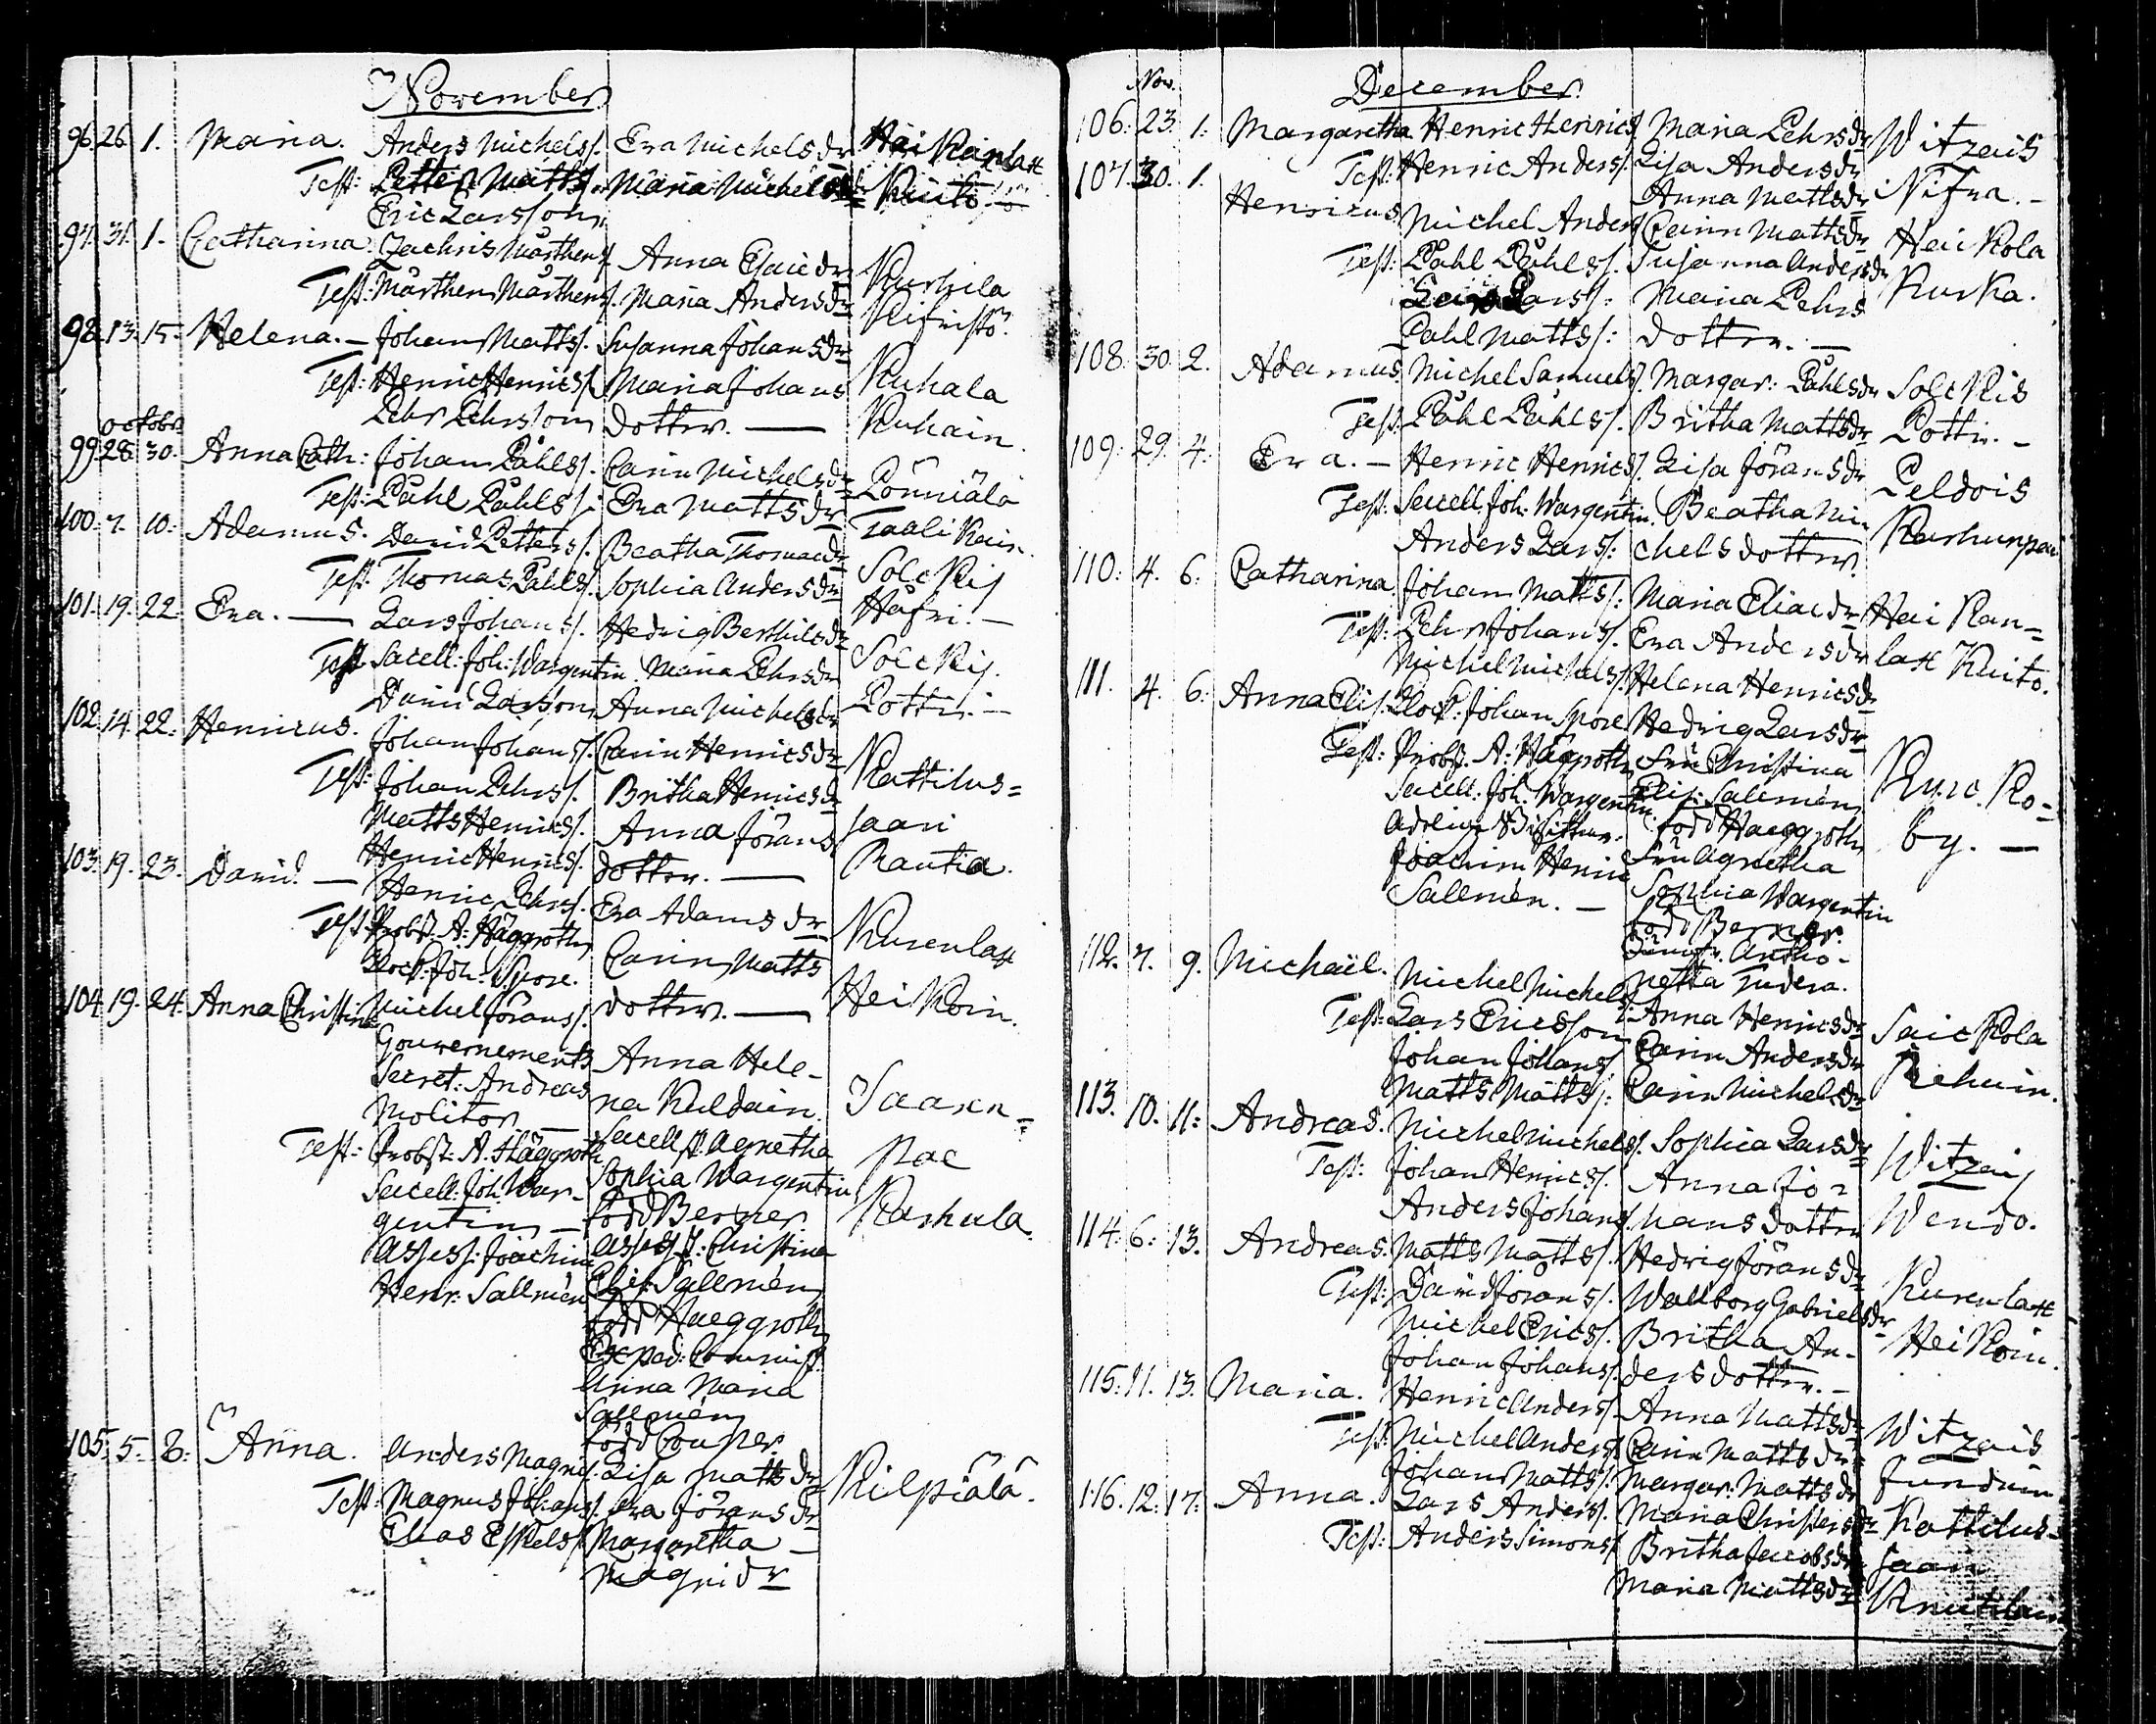 November
96. 26. 1. Maria. Anders Michels/. Eva Michels dr Hai Kanlax
Test: Petter Matts/. Maria Michels dr Kuito
Eric Larsson
97. 31. 1. Catharina. Zachris Mårthens/. Anna Esaie dr Kurkila
Test: Mårthen Mårthens/. Maria Anders dr Kifvistö.
98. 13. 15. Helena. — Johan Matts/. Susanna Johans dr Kuhala
Test: Henric Henrics/. Maria Johans Kuhain
Pehr Pehrsson dotter. —
octobr
99. 28. 30. Anna Cath: Johan Påhls/. Carin Michels dr Pönniälä
Test: Påhl Påhls/: Eva Matts dr Taali Kain.
100. 7. 10. Adamus. David Petters/. Beatha Thomae dr Solc Kis
Test: Thomas Påhls/. Sophia Anders dr Håfri. —
101. 19. 22. Eva. — Lars Johans/. Hedvig Berthils dr Solc Kis.
Test: Sacell: Joh: Wargentin. Maria Pehrs dr Pottin. —
David Larsson Anna Michels dr
102. 14. 22. Henricus. Johan Johans/. Carin Henrics dr Kattilus=
Test: Johan Pehrs/. Britha Henrics dr saari
Matts Henrics/. Anna Jörans Rautia.
Henric Henrics/. dotter. —
103. 19. 23. David. — Henric Pehrs/. Eva Adams dr Kurenlax
Test: Probst. A: Häggroth Carin Matts Hei Koin.
Klock: Joh: Spore. dotter. —
104. 19. 24. Anna Christina Michel Jörans/.
Gouvernements Anna Hele- Saaren=
Secret: Andreas na Kuldain. Pae
Molitor. —
Test: Probst: A. Häggroth Sacell: Fr Agnetha Karhula.
Sacell: Joh: War- Sophia Wargentin
gentin — född Berner.
Assess: Joachim Assess: Fr: Christina
Henr: Sallmén Elis: Sallmén
född Haeggroth
Exped: Commiss:
Anna Maria
Sallmén
född Couper.
105. 5. 8. Anna. Anders Magnis/. Lisa Matts dr Kilpiälä.
Test: Magnus Johans/. Eva Jörans dr
Elias Eskels/. Margaretha —
Magni dr
Nov. December.
106. 23. 1. Margaretha Henric Henrics/. Maria Pehrs dr Witzais
Test: Henric Anders/. Lisa Anders dr Nifna. —
Anna Matts dr
107. 30. 1. Henricus Michel Anders/. Carin Matts dr Hei Kola
Test: Påhl Påhls/. Susanna Anders dr Kurka.
Lars Lars/: Maria Pehrs
Pahl Matts/: dotter. —
108. 30. 2. Adamus. Michel Samuels/. Margar: Påhls dr Solc Kis
Test: Påhl Påhls/. Britha Matts dr Pottin. —
109. 29. 4. Eva. — Henric Henrics/. Lisa Jörans dr Peldois
Test: Sacell. Joh: Wargentin. Beatha Mi- Karhunpää
Anders Lars/: chels dotter.
110. 4. 6. Catharina Johan Matts/: Maria Eliae dr Hai Kan=
Test: Pehr Johans/. Eva Anders dr lax Kuito.
Michel Michels/. Helena Henrics dr
111. 4. 6. Anna Elis. Klock: Johan Spore Hedvig Lars dr
Test: Probst. A: Häggroth Fru Christina Kyrc. Ko=
Sacell: Joh: Wargentin. Elis: Salemén by. —
född Haeggroth
Joachim Henric Fru Agnetha
Sallmén. — Sophia Wargentin
född Berner.
Jungfr. Antho-
netta Tudera.
112. 7. 9. Michaël. Michel Michels/. Anna Henrics dr Saic Kola
Test: Lars Ericsson Carin Anders dr
Johan Johans/. Carin Michels dr
Matts Matts/:
113. 10. 11. Andreas. Michel Michels/. Sophia Lars dr Witzais
Test: Johan Henrics/. Anna Jo= Wendo.
Anders Johans/. hans dotter
114. 6. 13. Andreas. Matts Matts/. Hedvig Jörans dr Kurenlax
Test: David Jörans/. Wallborg Gabriels dr Hei Koin.
Michel Erics/. Britha An-
Johan Johans/. ders dotter. —
115. 11. 13. Maria. Henric Anders/. Anna Matts dr Witzais
Test: Michel Anders/. Carin Matts dr Junduin
Johan Matts/. Margar: Matts dr
116. 12. 17. Anna. Lars Anders/. Maria Christers dr Kattilus=
Test: Anders Simons/. Britha Jacobs dr saari
Maria Matts dr Knutilain